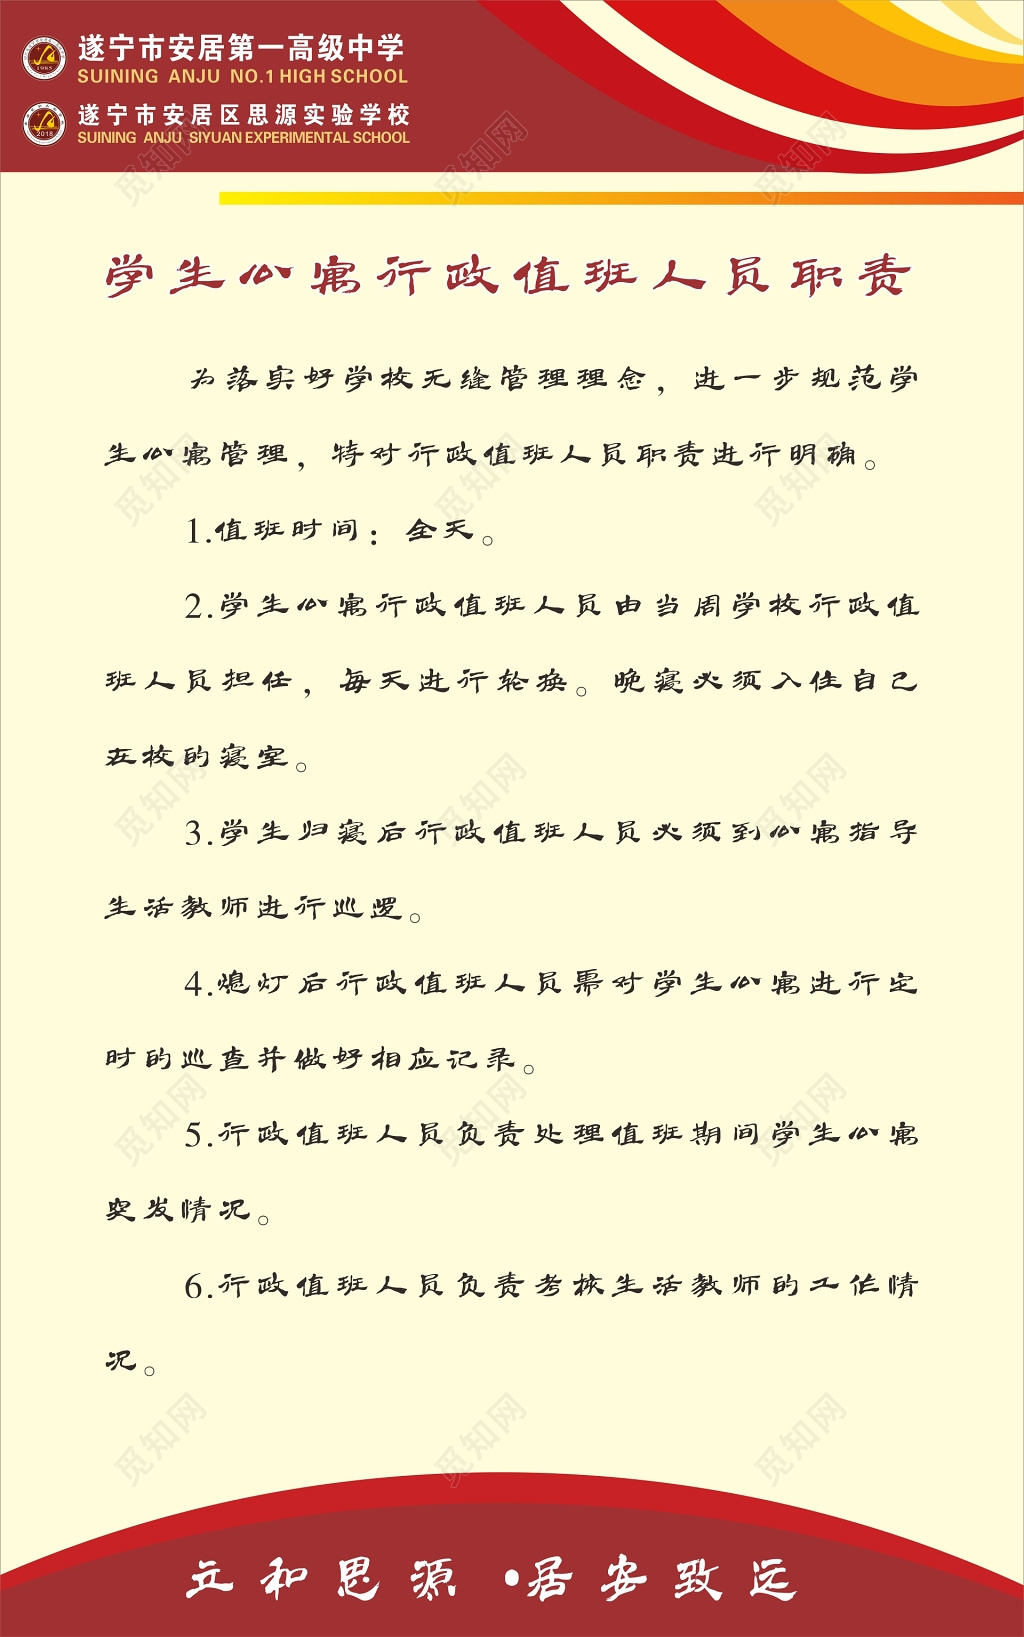 遂宁市安居第一高级中学
SUINING ANJU NO.1 HIGH SCHOOL
1985
遂宁市安居区思源实验学校
SUINING ANJU SIYUAN EXPERIMENTAL SCHOOL
2018
学生公寓行政值班人员职责
为落实好学校无缝管理理念，进一步规范学
生公寓管理，特对行政值班人员职责进行明确。
1.值班时间：全天。
2.学生公寓行政值班人员由当周学校行政值
班人员担任，每天进行轮换。晚寝必须入住自己
在校的寝室。
3.学生归寝后行政值班人员必须到公寓指导
生活教师进行巡逻。
4.熄灯后行政值班人员需对学生公寓进行定
时的巡查并做好相应记录。
5.行政值班人员负责处理值班期间学生公寓
突发情况。
6.行政值班人员负责考核生活教师的工作情
况。
立和思源·居安致远
觅知网